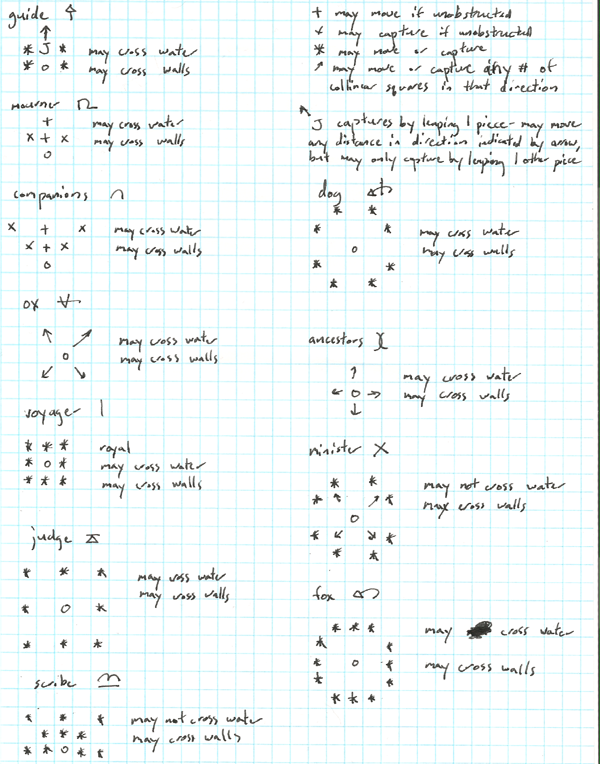 guide
↑
* J * may cross water
* o * may cross walls
mourner
+ may cross water
x + x may cross walls
o
companions
x + x may cross water
x + x may cross walls
o
ox
↖ ↗ may cross water
o may cross walls
↙ ↘
voyager
* * * royal
* o * may cross water
* * * may cross walls
judge
* * * may cross water
may cross walls
* o *
* * *
scribe
* * * may not cross water
* * * may cross walls
* * o * *
+ may move if unobstructed
x may capture if unobstructed
* may move or capture
↗ may move or capture any # of
collinear squares in that direction
↖
J captures by leaping 1 piece - may move
any distance in direction indicated by arrow,
but may only capture by leaping 1 other piece
dog
* *
* * may cross water
o may cross walls
* *
* *
ancestors
↑ may cross water
← o → may cross walls
↓
minister
* * may not cross water
* ↖ ↗ * may cross walls
o
* ↙ ↘ *
* *
fox
* * * may cross water
* *
* o * may cross walls
* *
* * *